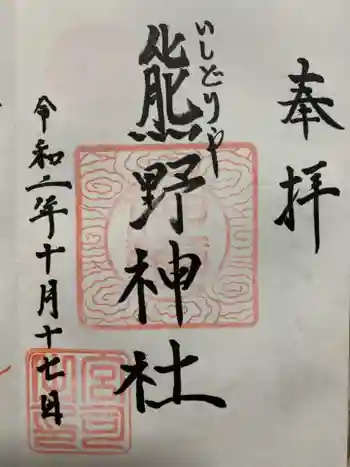 奉拝
いしどりや
熊野神社
令和二年十月十七日
宮司之印